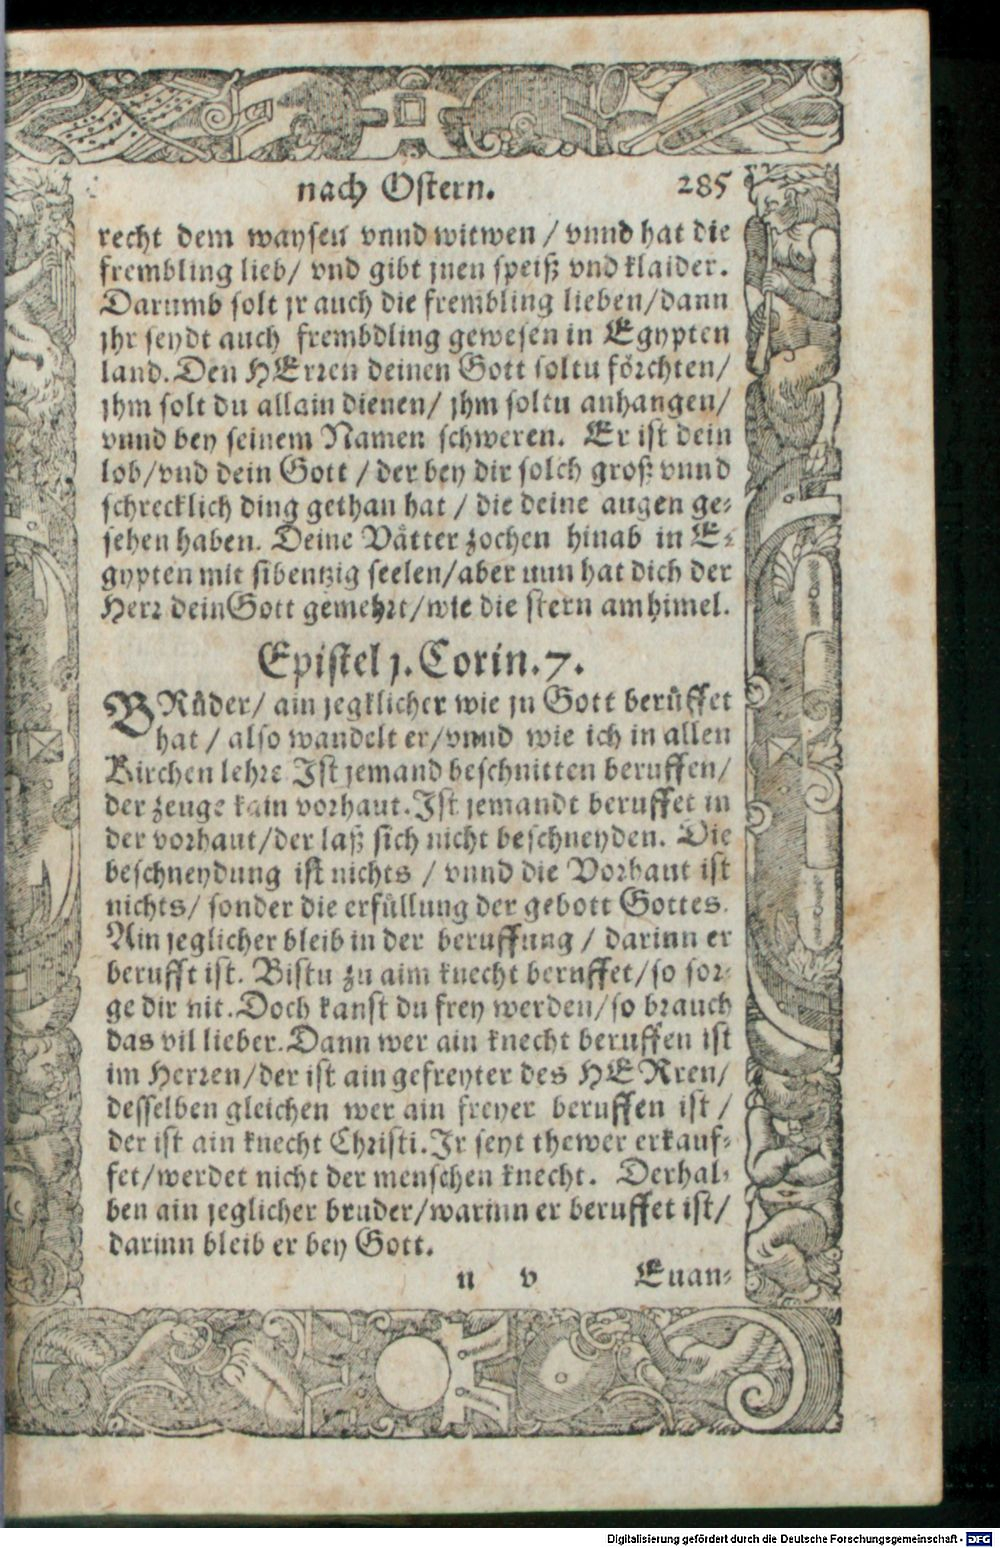 nach Ostern. 285
recht dem waysen vnnd witwen / vnnd hat die
frembling lieb/ vnd gibt jnen speiß vnd klaider.
Darumb solt jr auch die frembling lieben/dann
jhr seydt auch frembdling gewesen in Egypten
land. Den HErren deinen Gott soltu förchten/
jhm solt du allain dienen/ jhm soltu anhangen/
vnnd bey seinem Namen schweren. Er ist dein
lob/vnd dein Gott / der bey dir solch groß vnnd
schrecklich ding gethan hat / die deine augen ge-
sehen haben. Deine Vätter zochen hinab in E-
gypten mit sibentzig seelen/aber nun hat dich der
Herr dein Gott gemehrt/wie die stern am himel.
Epistel j. Corin. 7.
BRüder/ ain jegklicher wie jn Gott berüffet
hat / also wandelt er/vnnd wie ich in allen
Kirchen lehre Ist jemand beschnitten beruffen/
der zeuge kain vorhaut. Ist jemandt beruffet in
der vorhaut/der laß sich nicht beschneyden. Die
beschneydung ist nichts / vnnd die Vorhaut ist
nichts/ sonder die erfüllung der gebott Gottes.
Ain jeglicher bleib in der beruffung / darinn er
berufft ist. Bistu zu aim knecht beruffet/so sor-
ge dir nit. Doch kanst du frey werden/so brauch
das vil lieber. Dann wer ain knecht beruffen ist
im Herren/der ist ain gefreyter des HERren/
desselben gleichen wer ain freyer beruffen ist /
der ist ain knecht Christi. Ir seyt thewer erkauf-
fet/werdet nicht der menschen knecht. Derhal-
ben ain jeglicher bruder/warinn er beruffet ist/
darinn bleib er bey Gott.
n v Euan-
Digitalisierung gefördert durch die Deutsche Forschungsgemeinschaft - DFG